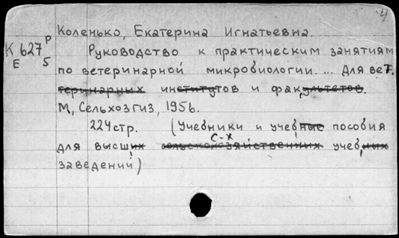 Коленько, Екатерина Игнатьевна.
К 627 Р
Е 5
Руководство к практическим занятиям
по ветеринарной микробиологии. ... Для вет.
теринарных институтов и факультетов.
М, Сельхозгиз, 1956.
224 стр. (Учебники и учебные пособия
с-х
для высших сельскохозяйственных учебных
заведений)